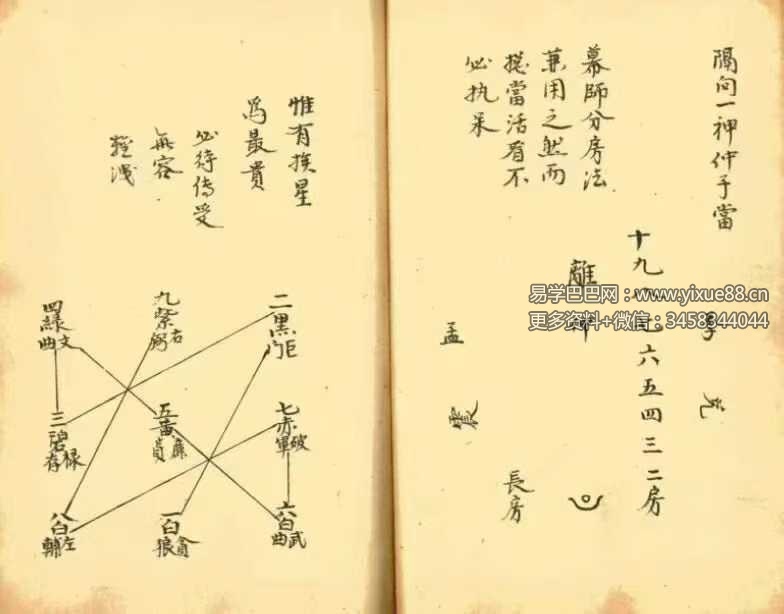 隔向一神仲子當
幕師分房法
兼用之然而
揔當活看不
必执呆
兌
十九
六五四三二房
離
孟
震
長房
易学巴巴网：www.yixue88.cn
更多资料+微信：3458344044
惟有挨星
為最貴
必待傳受
無容
輕洩
二黑巨門
九紫右弼
四綠文曲
七赤破軍
五黃廉貞
三碧祿存
六白武曲
一白貪狼
八白左輔